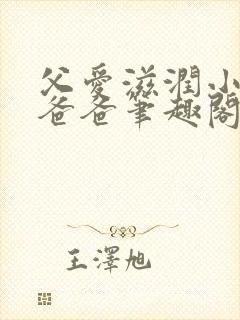 父愛滋潤小
爸爸筆趣閣
王澤旭